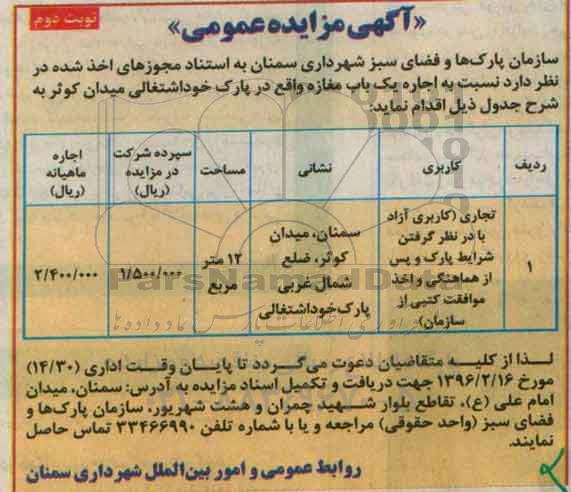 نوبت دوم
«آگهی مزایده عمومی»
سازمان پارک‌ها و فضای سبز شهرداری سمنان به استناد مجوزهای اخذ شده در
نظر دارد نسبت به اجاره یک باب مغازه واقع در پارک خوداشتغالی میدان کوثر به
شرح جدول ذیل اقدام نماید:
ردیف
کاربری
نشانی
مساحت
سپرده شرکت
در مزایده
(ریال)
اجاره
ماهیانه
(ریال)
۱
تجاری (کاربری آزاد
با در نظر گرفتن
شرایط پارک و پس
از هماهنگی و اخذ
موافقت کتبی از
سازمان)
سمنان، میدان
کوثر، ضلع
شمال غربی
پارک خوداشتغالی
۱۲ متر
مربع
۱/۵۰۰/۰۰۰
۲/۴۰۰/۰۰۰
لذا از کلیه متقاضیان دعوت می‌گردد تا پایان وقت اداری (۱۴/۳۰)
مورخ ۱۳۹۶/۲/۱۶ جهت دریافت و تکمیل اسناد مزایده به آدرس: سمنان، میدان
امام علی (ع)، تقاطع بلوار شهید چمران و هشت شهریور، سازمان پارک‌ها و
فضای سبز (واحد حقوقی) مراجعه و یا با شماره تلفن ۳۳۴۶۶۹۹۰ تماس حاصل
نمایند.
روابط عمومی و امور بین‌الملل شهرداری سمنان
ParsNamadData